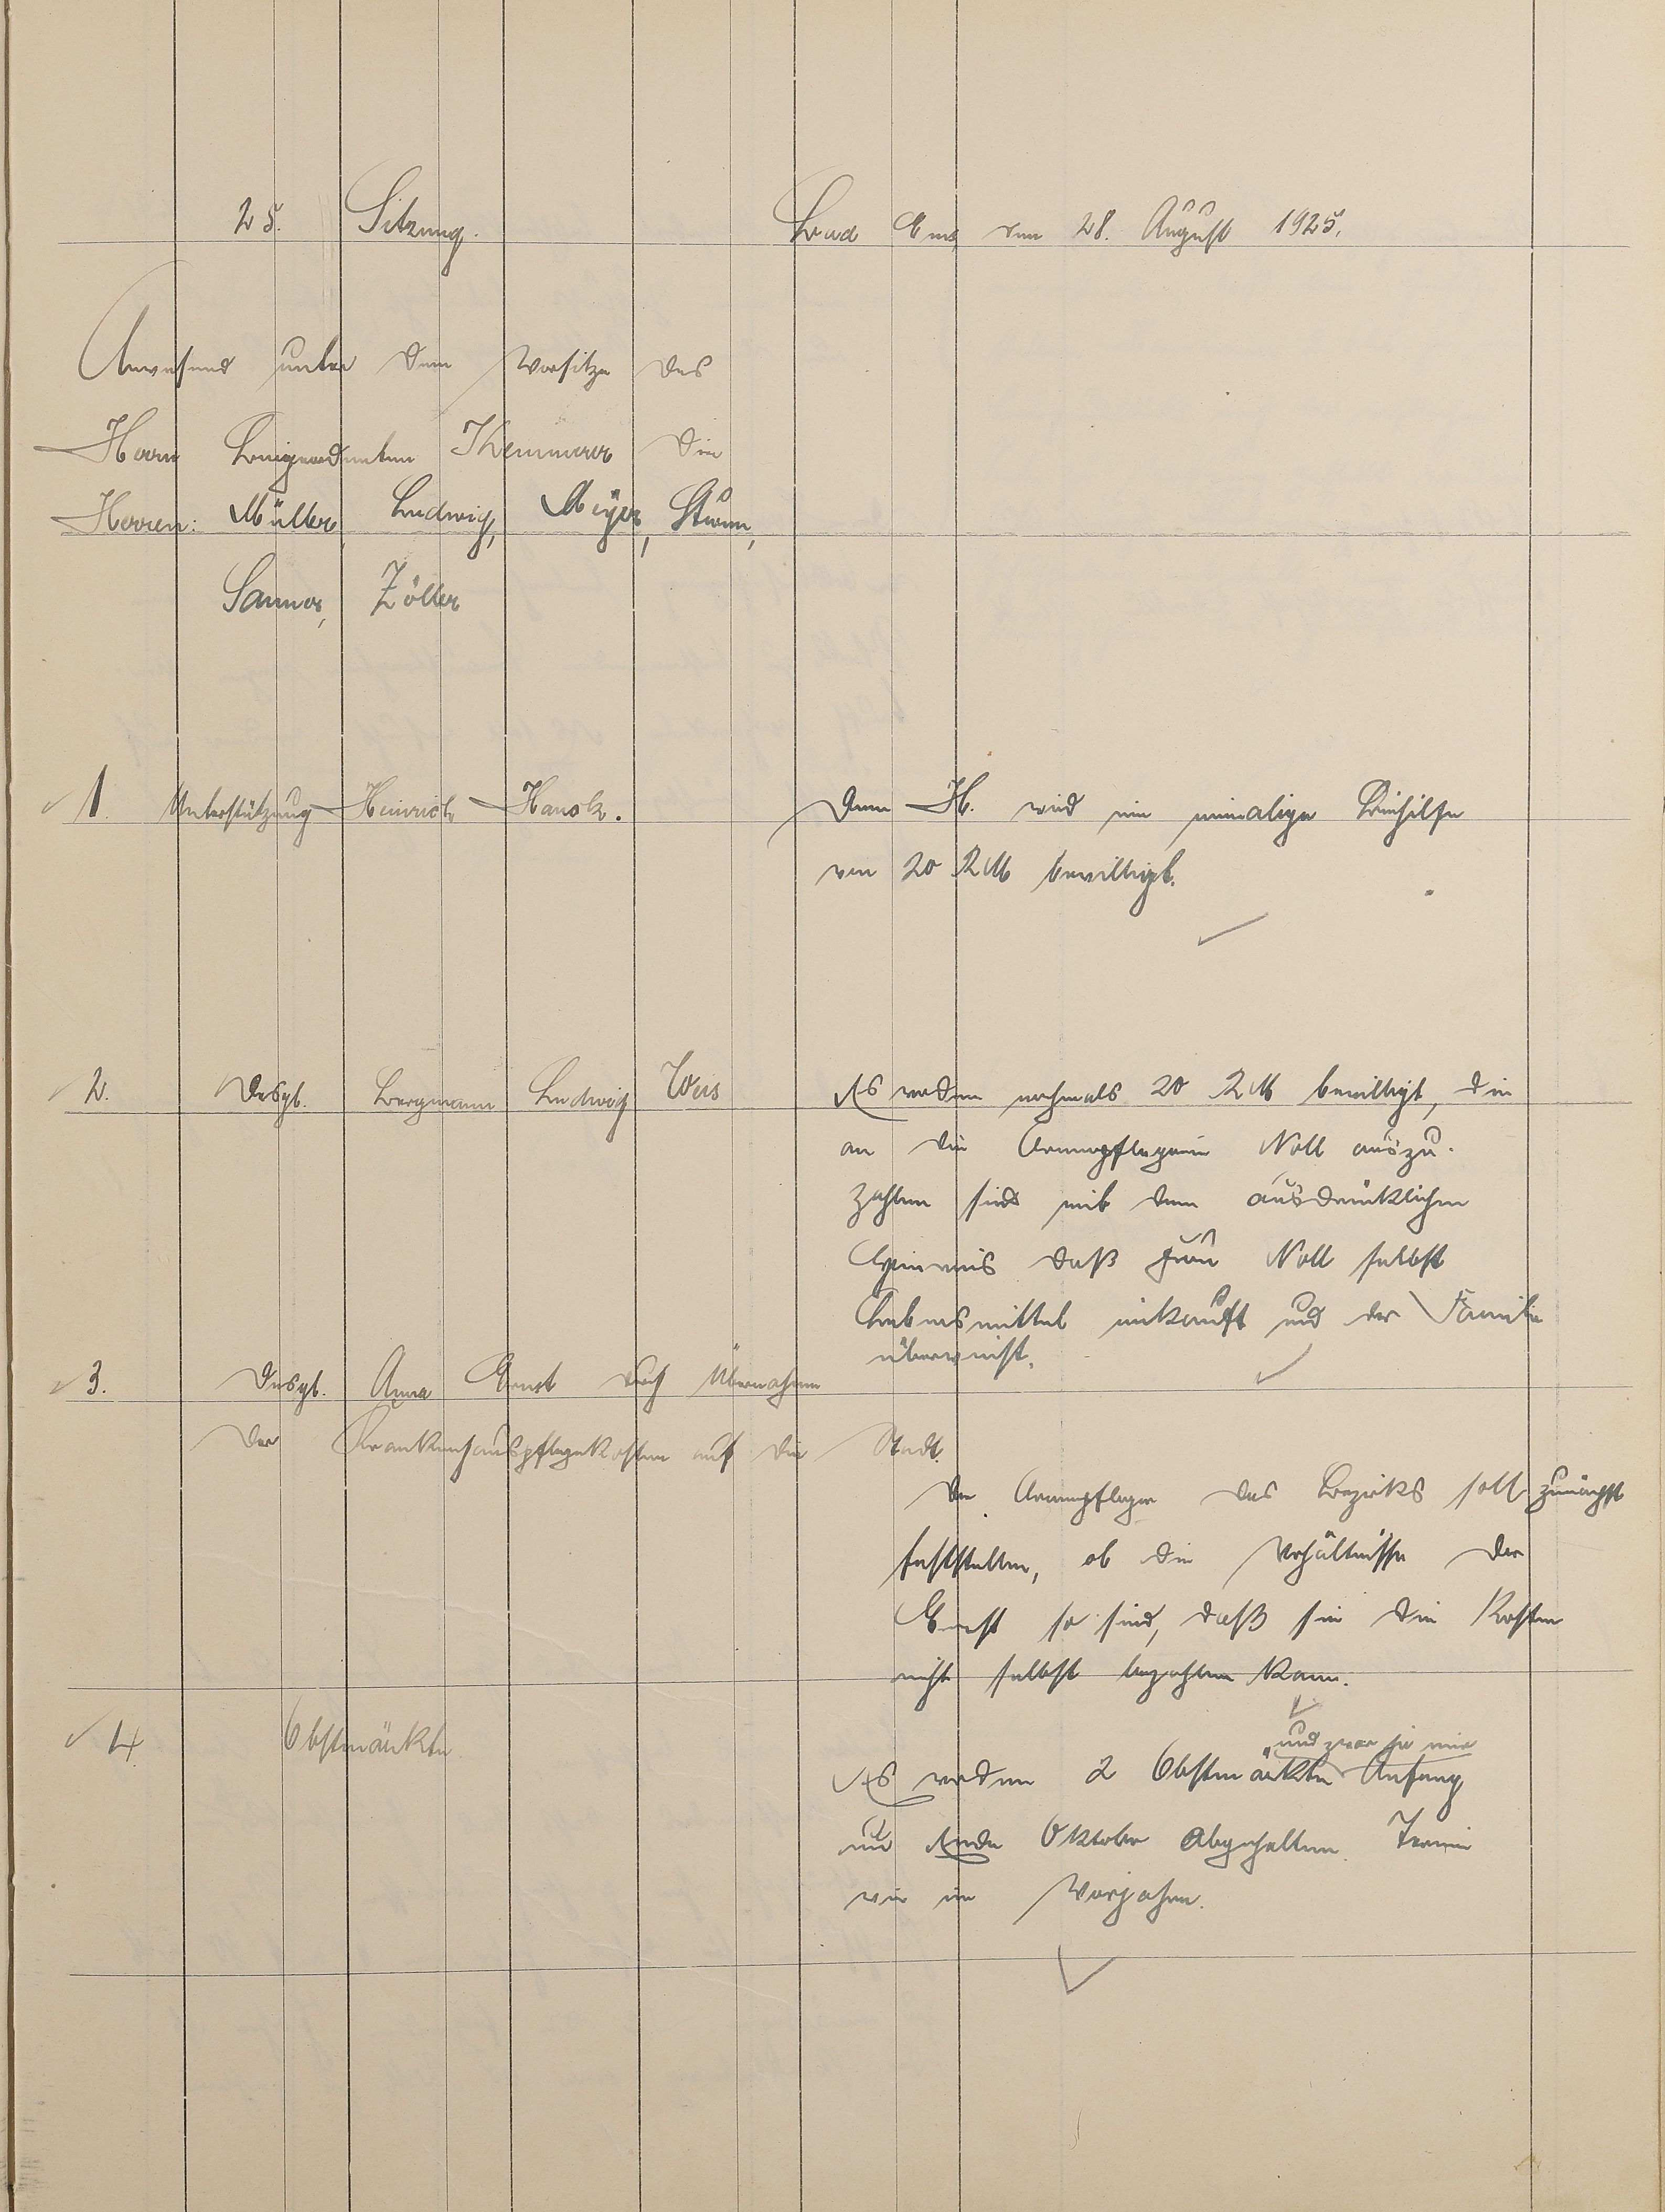 25. Sitzung.
Bad Ems, den 28. August 1925.
Anwesend unter dem Vorsitze des
Herrn Beigeordneten Kemmerer die
Herren: Müller, Ludwig, Meyer, Sturm,
Sanner, Zöller
1. Unterstützung Heinrich Hanck.
Dem H. wird eine einmalige Beihilfe
von 20 RM bewilligt.
2. Desgl. Bergmann Ludwig Weis
Es werden nochmals 20 RM bewilligt, die
an die Armenpflegerin Noll auszu-
zahlen sind mit dem ausdrücklichen
daß Frau Noll selbst
Lebensmittel einkauft und der Familie
überweist.
3. Desgl. Anna Ernst durch Übernahme
der Krankenhauspflegekosten auf die Stadt.
Der Armenpfleger des Bezirks soll zunächst
feststellen, ob die Verhältnisse der
Ernst so sind, daß sie die Kosten
nicht selbst bezahlen kann.
4. Obstmärkte
und zwar je einer
Es werden 2 Obstmärkte Anfang
und Ende Oktober abgehalten. Termin
wie im Vorjahre.